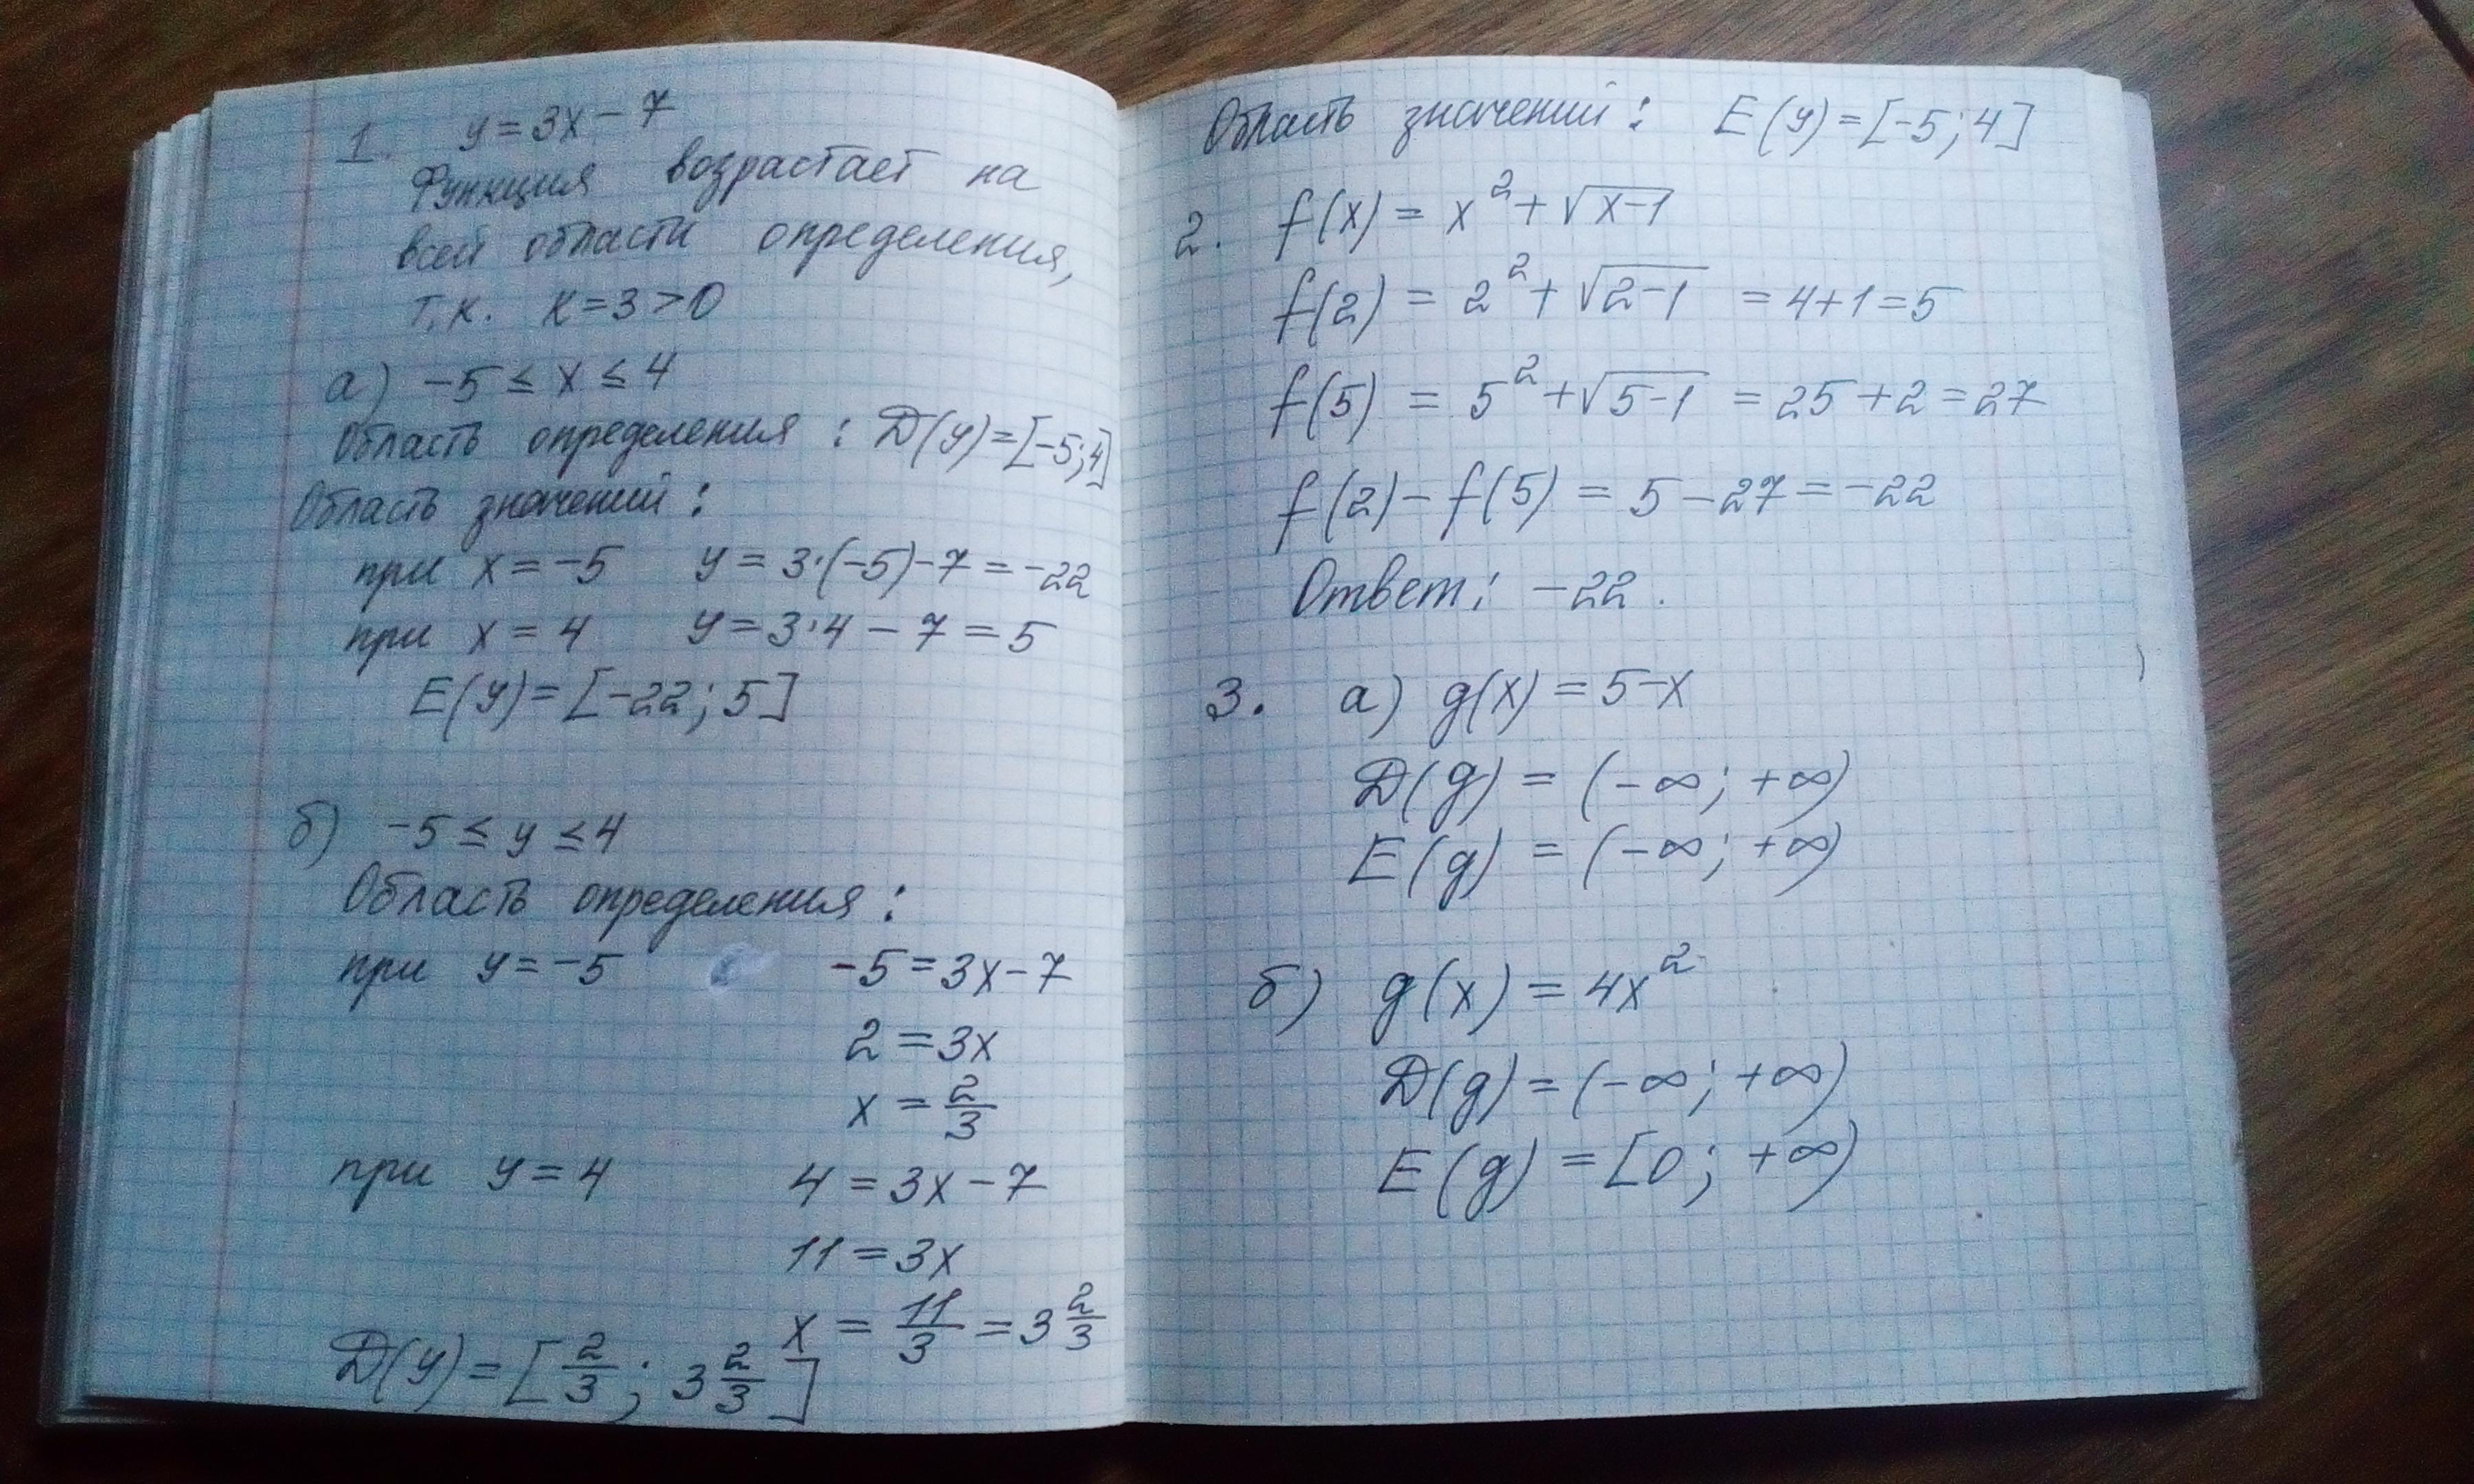 1. y = 3x - 7
Функция возрастает на
всей области определения,
т.к. к = 3 > 0
а) -5 ≤ x ≤ 4
Область определения : D(y) = [-5; 4]
Область значений :
при x = -5 y = 3·(-5) - 7 = -22
при x = 4 y = 3·4 - 7 = 5
E(y) = [-22; 5]
б) -5 ≤ y ≤ 4
Область определения :
при y = -5 -5 = 3x - 7
2 = 3x
x = 2/3
при y = 4 4 = 3x - 7
11 = 3x
x = 11/3 = 3 2/3
D(y) = [2/3; 3 2/3]
Область значений : E(y) = [-5; 4]
2. f(x) = x² + √(x-1)
f(2) = 2² + √(2-1) = 4 + 1 = 5
f(5) = 5² + √(5-1) = 25 + 2 = 27
f(2) - f(5) = 5 - 27 = -22
Ответ: -22.
3. а) g(x) = 5 - x
D(g) = (-∞; +∞)
E(g) = (-∞; +∞)
б) g(x) = 4x²
D(g) = (-∞; +∞)
E(g) = [0; +∞)